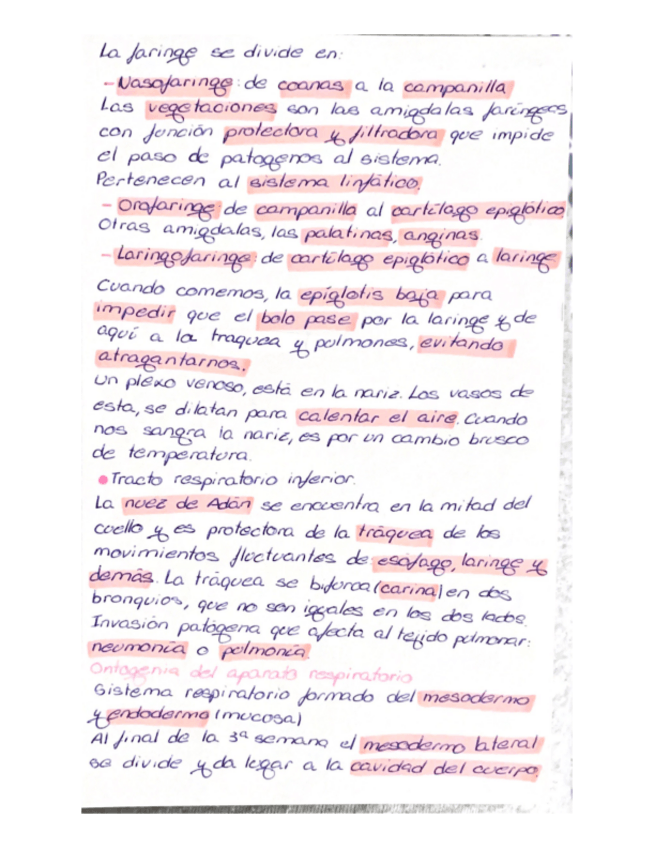 La faringe se divide en:
- Nasofaringe: de coanas a la campanilla
Las vegetaciones son las amigdalas faríngeas
con función protectora y filtradora que impide
el paso de patogenos al sistema.
Pertenecen al sistema linfático.
- Orofaringe: de campanilla al cartílago epiglótico
Otras amigdalas, las palatinas, anginas.
- Laringofaringe: de cartílago epiglótico a laringe
Cuando comemos, la epíglotis baja para
impedir que el bolo pase por la laringe y de
aquí a la traquea y pulmones, evitando
atragantarnos.
Un plexo venoso, está en la nariz. Los vasos de
esta, se dilatan para calentar el aire. Cuando
nos sangra la nariz, es por un cambio brusco
de temperatura.
• Tracto respiratorio inferior.
La nuez de Adán se encuentra en la mitad del
cuello y es protectora de la tráquea de los
movimientos fluctuantes de esófago, laringe y
demás. La tráquea se bifurca (carina) en dos
bronquios, que no son iguales en los dos lados.
Invasión patógena que afecta al tejido pulmonar:
neumonía o pulmonía.
Ontogenia del aparato respiratorio
Sistema respiratorio formado del mesodermo
y endodermo (mucosa)
Al final de la 3ª semana el mesodermo lateral
se divide y da lugar a la cavidad del cuerpo.